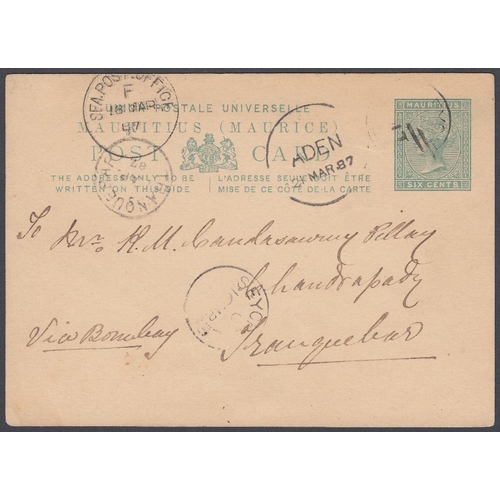 SEA POST OFFICE
F
18 MAR
87
UNION POSTALE UNIVERSELLE
MAURITIUS (MAURICE)
POST CARD
THE ADDRESS ONLY TO BE
WRITTEN ON THIS SIDE
L'ADRESSE SEULE DOIT ÊTRE
MISE DE CE CÔTÉ DE LA CARTE
MAURITIUS
SIX CENTS
ADEN
MAR. 87
TRANQUEBAR
To Mr. K. M. Candasawmy Pillay
Chandrapady
Via Bombay
Tranquebar
SEYC